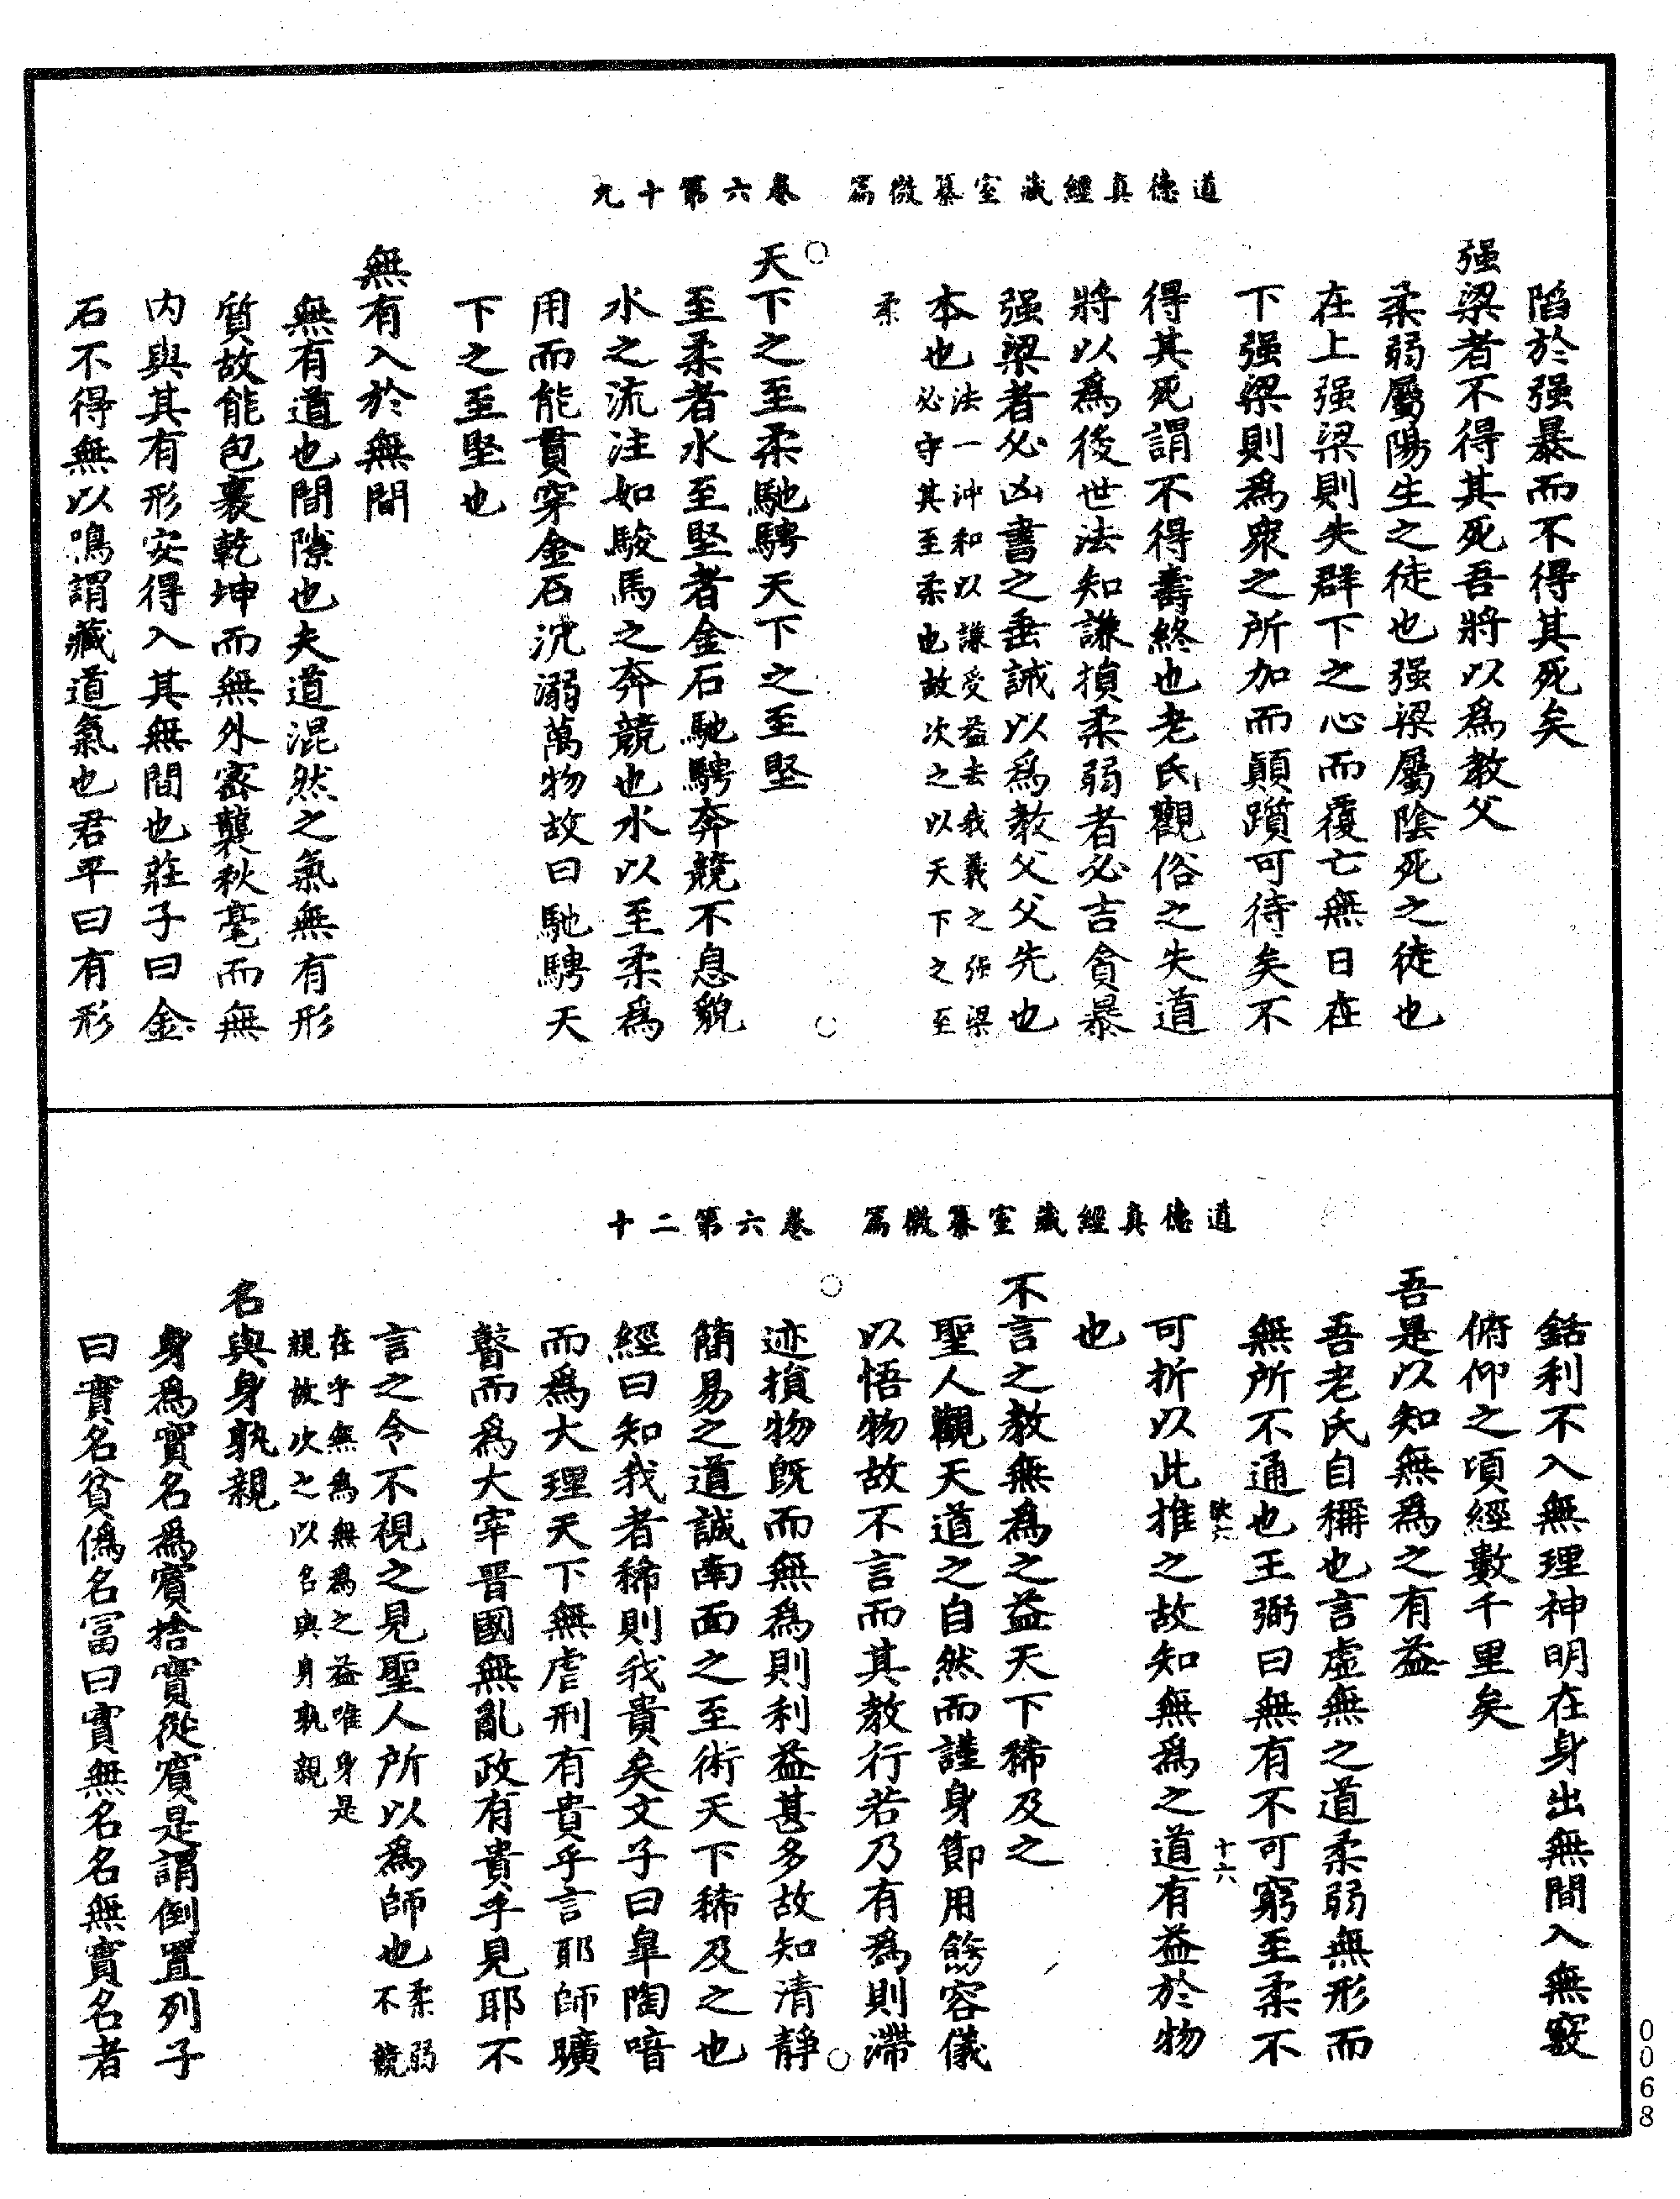 道德真經藏室纂微篇　卷六第十九
陷於强暴而不得其死矣
强梁者不得其死吾將以爲教父
柔弱屬陽生之徒也强梁屬陰死之徒也
在上强梁則失群下之心而覆亡無日在
下强梁則爲衆之所加而顛躓可待矣不
得其死謂不得壽終也老氏觀俗之失道
將以爲後世法知謙損柔弱者必吉貪暴
强梁者必凶書之垂誡以爲教父父先也
本也法一沖和以謙受益去我義之強梁
必守其至柔也故次之以天下之至
柔
天下之至柔馳騁天下之至堅
至柔者水至堅者金石馳騁奔競不息貌
水之流注如駿馬之奔競也水以至柔爲
用而能貫穿金石沉溺萬物故曰馳騁天
下之至堅也
無有入於無間
無有道也間隙也夫道混然之氣無有形
質故能包裹乾坤而無外密襲秋毫而無
内與其有形安得入其無間也莊子曰金
石不得無以鳴謂藏道氣也君平曰有形
道德真經藏室纂微篇　卷六第二十
銛利不入無理神明在身出無間入無竅
俯仰之頃經數千里矣
吾是以知無爲之有益
吾老氏自稱也言虛無之道柔弱無形而
無所不通也王弼曰無有不可窮至柔不
欲六
十六
可折以此推之故知無爲之道有益於物
也
不言之教無爲之益天下稀及之
聖人觀天道之自然而謹身節用飭容儀
以悟物故不言而其教行若乃有爲則滯
迹損物旣而無爲則利益甚多故知清靜
簡易之道誠南面之至術天下稀及之也
經曰知我者稀則我貴矣文子曰臯陶喑
而爲大理天下無虐刑有貴乎言耶師曠
瞽而爲大宰晉國無亂政有貴乎見耶不
言之令不視之見聖人所以爲師也柔弱
不競
在乎無爲無爲之益唯身是
親故次之以名與身孰親
名與身孰親
身爲實名爲賓捨實從賓是謂倒置列子
曰實名貧僞名冨曰實無名名無實名者
0068